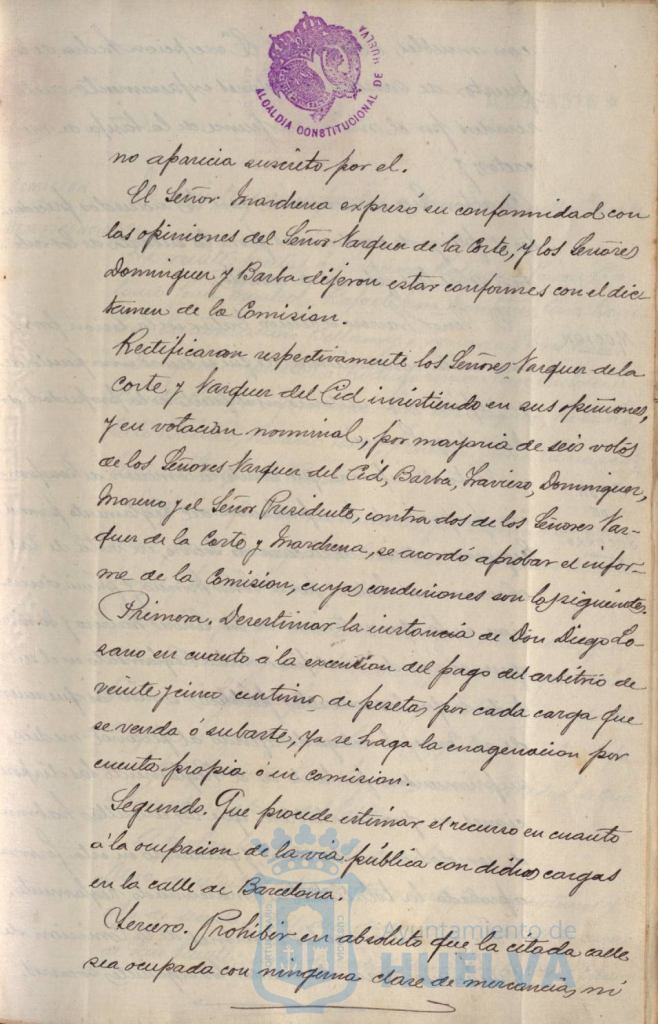 ALCALDIA CONSTITUCIONAL DE HUELVA
no aparicia suscrito por el.
El Señor Marchena expresó su conformidad con
las opiniones del Señor Vazquez de la Corte, y los Señores
Dominguez y Barba dijeron estar conformes con el dic-
tamen de la Comision.
Rectificaron respectivamente los Señores Vazquez de la
Corte y Vazquez del Cid insistiendo en sus opiniones,
y en votacion nominal, por mayoria de seis votos
de los Señores Vazquez del Cid, Barba, Travieso, Dominguez,
Moreno y el Señor Presidente, contra dos de los Señores Vaz-
quez de la Corte y Marchena, se acordó aprobar el infor-
me de la Comision, cuyas conclusiones son las siguientes.
Primera. Desestimar la instancia de Don Diego Lo-
zano en cuanto á la excencion del pago del arbitrio de
veinte y cinco centimos de peseta, por cada carga que
se venda ó subaste, ya se haga la enagenacion por
cuenta propia ó en comision.
Segundo. Que procede estimar el recurso en cuanto
á la ocupacion de la via pública con dichas cargas
en la calle de Barcelona.
Tercero. Prohibir en absoluto que la citada calle
sea ocupada con ninguna clase de mercancia, ni
Ayuntamiento de
HUELVA